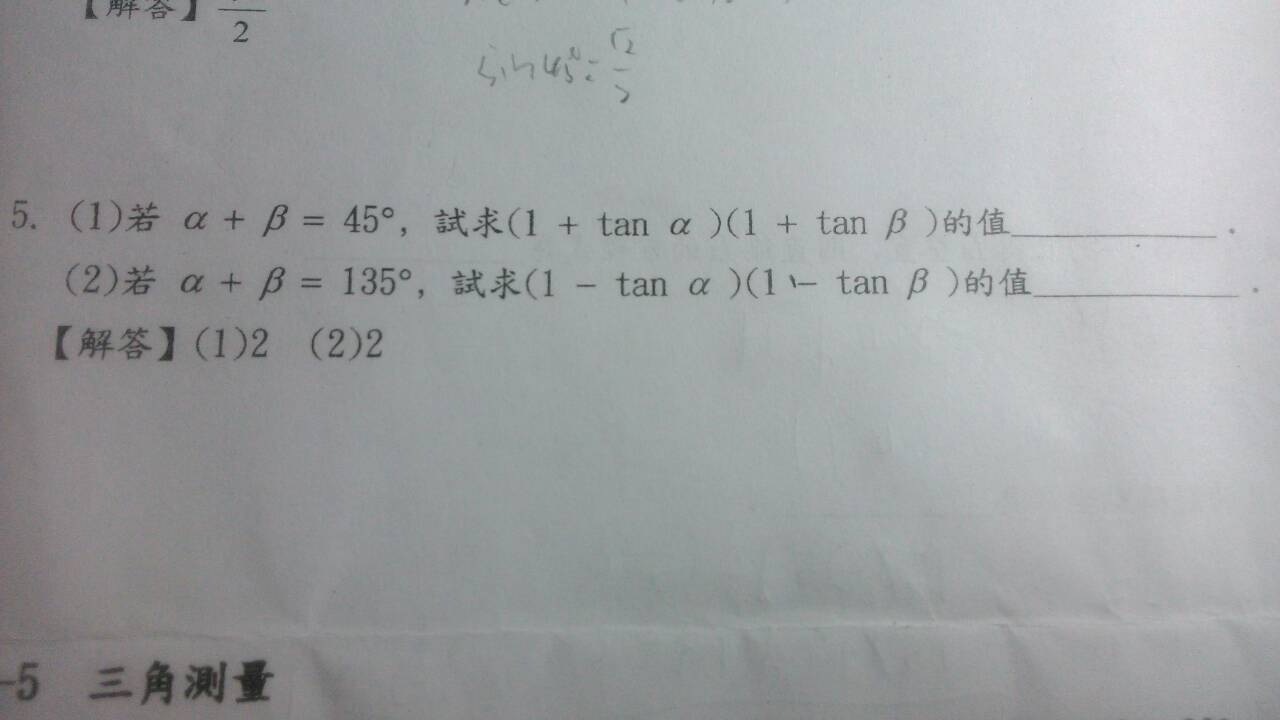 【解答】 2
sin45°=√2/2
5. (1)若 α + β = 45°, 試求(1 + tan α )(1 + tan β )的值____________.
(2)若 α + β = 135°, 試求(1 - tan α )(1 - tan β )的值____________.
【解答】(1)2 (2)2
-5 三角測量